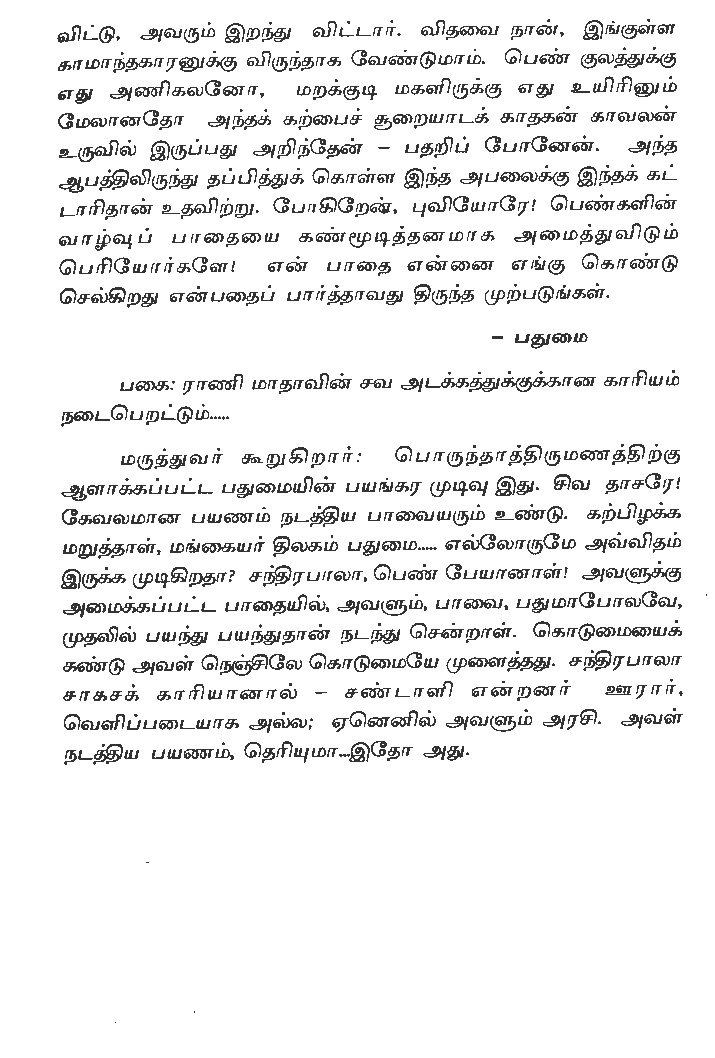 விட்டு, அவரும் இறந்து விட்டார். விதவை நான், இங்குள்ள
காமாந்தகாரனுக்கு விருந்தாக வேண்டுமாம். பெண் குலத்துக்கு
எது அணிகலனோ, மறக்குடி மகளிருக்கு எது உயிரினும்
மேலானதோ அந்தக் கற்பைச் சூறையாடக் காதகன் காவலன்
உருவில் இருப்பது அறிந்தேன் – பதறிப் போனேன். அந்த
ஆபத்திலிருந்து தப்பித்துக் கொள்ள இந்த அபலைக்கு இந்தக் கட்
டாரிதான் உதவிற்று. போகிறேண், புவியோரே! பெண்களின்
வாழ்வுப் பாதையை கண்மூடித்தனமாக அமைத்துவிடும்
பெரியோர்களே! என் பாதை என்னை எங்கு கொண்டு
செல்கிறது என்பதைப் பார்த்தாவது திருந்த முற்படுங்கள்.
– பதுமை
பகை: ராணி மாதாவின் சவ அடக்கத்துக்குக்கான காரியம்
நடைபெறட்டும்.....
மருத்துவர் கூறுகிறார்: பொருந்தாத்திருமணத்திற்கு
ஆளாக்கப்பட்ட பதுமையின் பயங்கர முடிவு இது. சிவ தாசரே!
கேவலமான பயணம் நடத்திய பாவையரும் உண்டு. கற்பிழக்க
மறுத்தாள், மங்கையர் திலகம் பதுமை..... எல்லோருமே அவ்விதம்
இருக்க முடிகிறதா? சந்திரபாலா, பெண் பேயானாள்! அவளுக்கு
அமைக்கப்பட்ட பாதையில், அவளும், பாவை, பதுமாபோலவே,
முதலில் பயந்து பயந்துதான் நடந்து சென்றாள். கொடுமையைக்
கண்டு அவள் நெஞ்சிலே கொடுமையே முளைத்தது. சந்திரபாலா
சாகசக் காரியானால் – சண்டாளி என்றனர் ஊரார்,
வெளிப்படையாக அல்ல; ஏனெனில் அவளும் அரசி. அவள்
நடத்திய பயணம், தெரியுமா...இதோ அது.